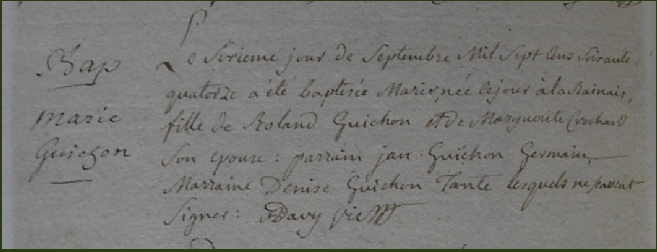 Bap
marie
Guichon
Le Sixieme jour de Septembre Mil Sept Cens Soixante-
quatorze a été baptisée Marie née ce jour à la Rainais,
fille de Roland Guichon et de Marguerite Crochard
Son epouse : parrain jan Guichon Germain,
Marraine Denise Guichon Tante lesquels ne savent
Signer : Davy